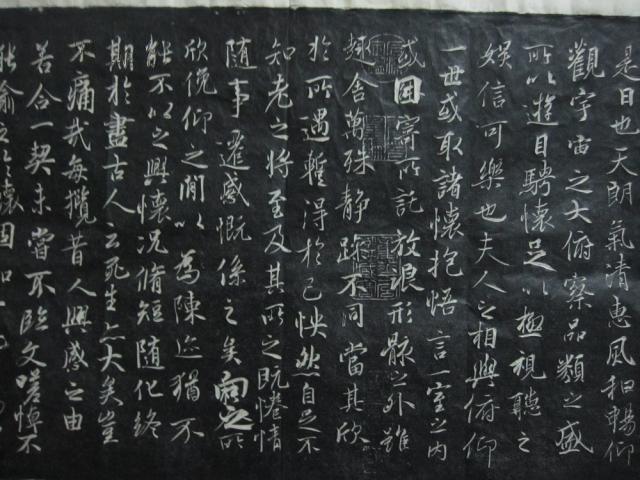 是日也天朗氣清惠風和暢仰
觀宇宙之大俯察品類之盛
所以遊目騁懷足以極視聽之
娛信可樂也夫人之相與俯仰
一世或取諸懷抱悟言一室之內
或因寄所託放浪形骸之外雖
趣舍萬殊靜躁不同當其欣
於所遇暫得於己怏然自足不
知老之將至及其所之既惓情
隨事遷感慨係之矣向之所
欣俛仰之閒以為陳迹猶不
能不以之興懷況脩短隨化終
期於盡古人云死生亦大矣豈
不痛哉每攬昔人興感之由
若合一契未嘗不臨文嗟悼不
能喻之於懷固知一